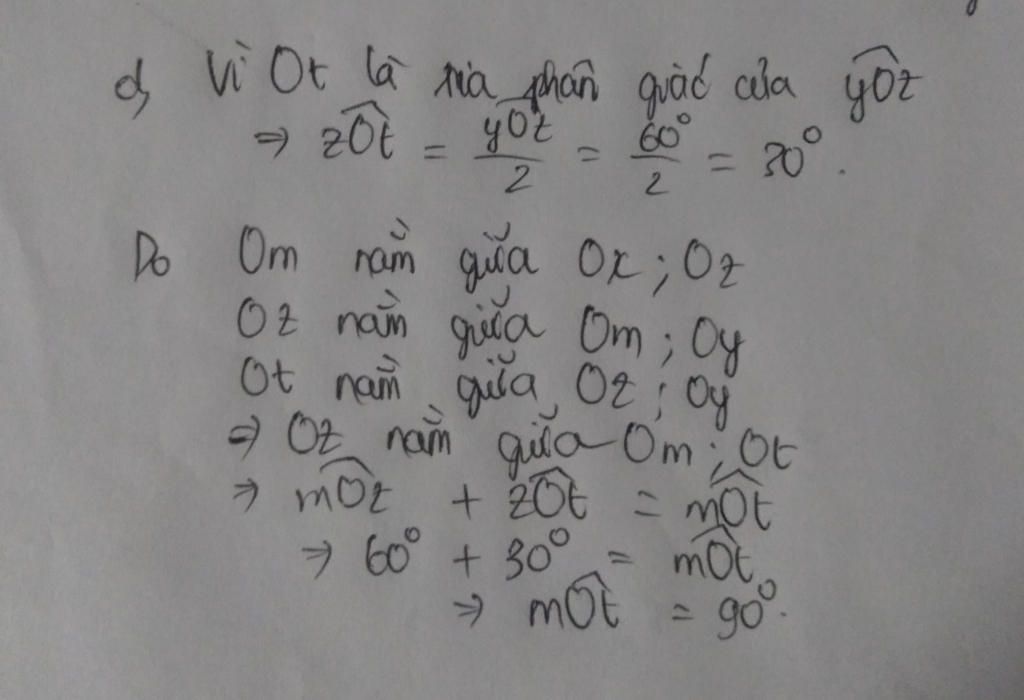 d, Vì Ot là tia phân giác của \widehat{yOz}
⇒ \widehat{zOt} = \frac{\widehat{yOz}}{2} = \frac{60°}{2} = 30°.
Do Om nằm giữa Ox ; Oz
Oz nằm giữa Om ; Oy
Ot nằm giữa Oz ; Oy
⇒ Oz nằm giữa Om ; Ot
⇒ \widehat{mOz} + \widehat{zOt} = \widehat{mOt}
⇒ 60° + 30° = \widehat{mOt}
⇒ \widehat{mOt} = 90°.